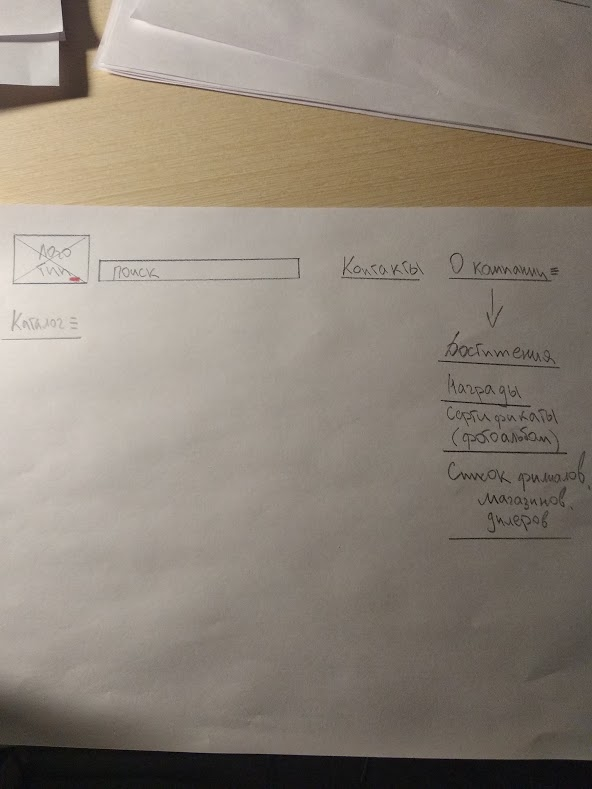 Лого
тип
поиск
Контакты
О компании
Каталог
Достижения
Награды
Сертификаты
(фотоальбом)
Список филиалов,
магазинов,
дилеров